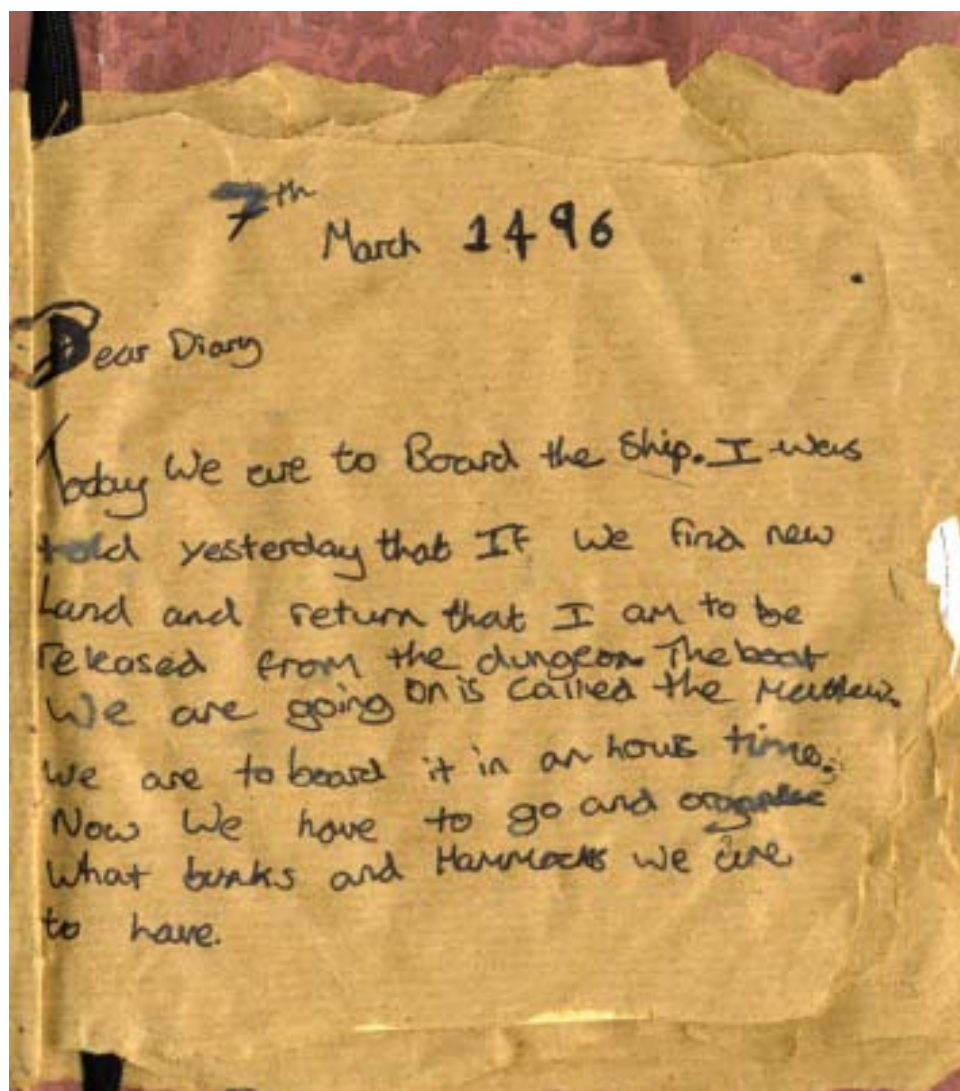 7th
March 1496
Dear Diary
Today We are to Board the Ship. I was
told yesterday that If we find new
Land and return that I am to be
released from the dungeon. The boat
We are going on is called the Matthew.
we are to board it in an hours time.
Now We have to go and organise
what bunks and Hammocks we are
to have.